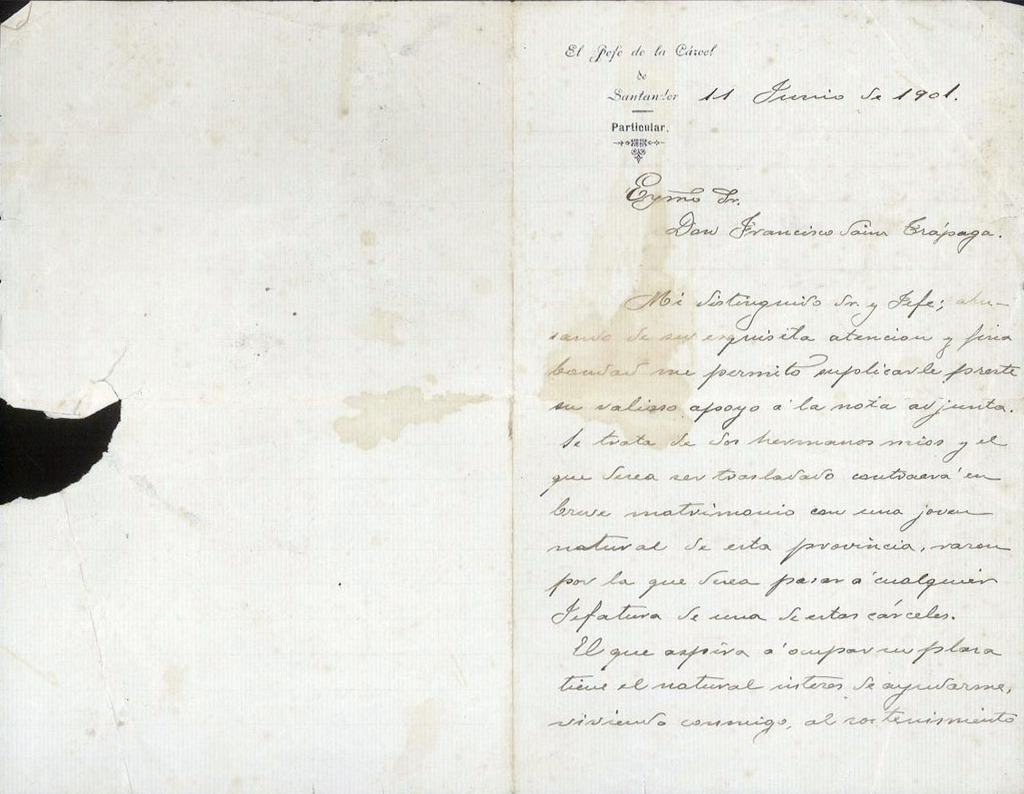 El Jefe de la Cárcel
de
Santander 11 Junio de 1901.
Particular.
Exmo Sr.
Don Francisco Sainz Trápaga.
Mi distinguido Sr. y Jefe; abu-
sando de su exquisita atencion y fina
bondad me permito suplicarle preste
su valioso apoyo á la nota adjunta.
Se trata de dos hermanos mios y el
que desea ser trasladado contraerá en
breve matrimonio con una joven
natural de esta provincia, razon
por la que desea pasar á cualquier
Jefatura de una de estas cárceles.
El que aspira á ocupar su plaza
tiene el natural interes de ayudarme,
viviendo conmigo, al sostenimiento